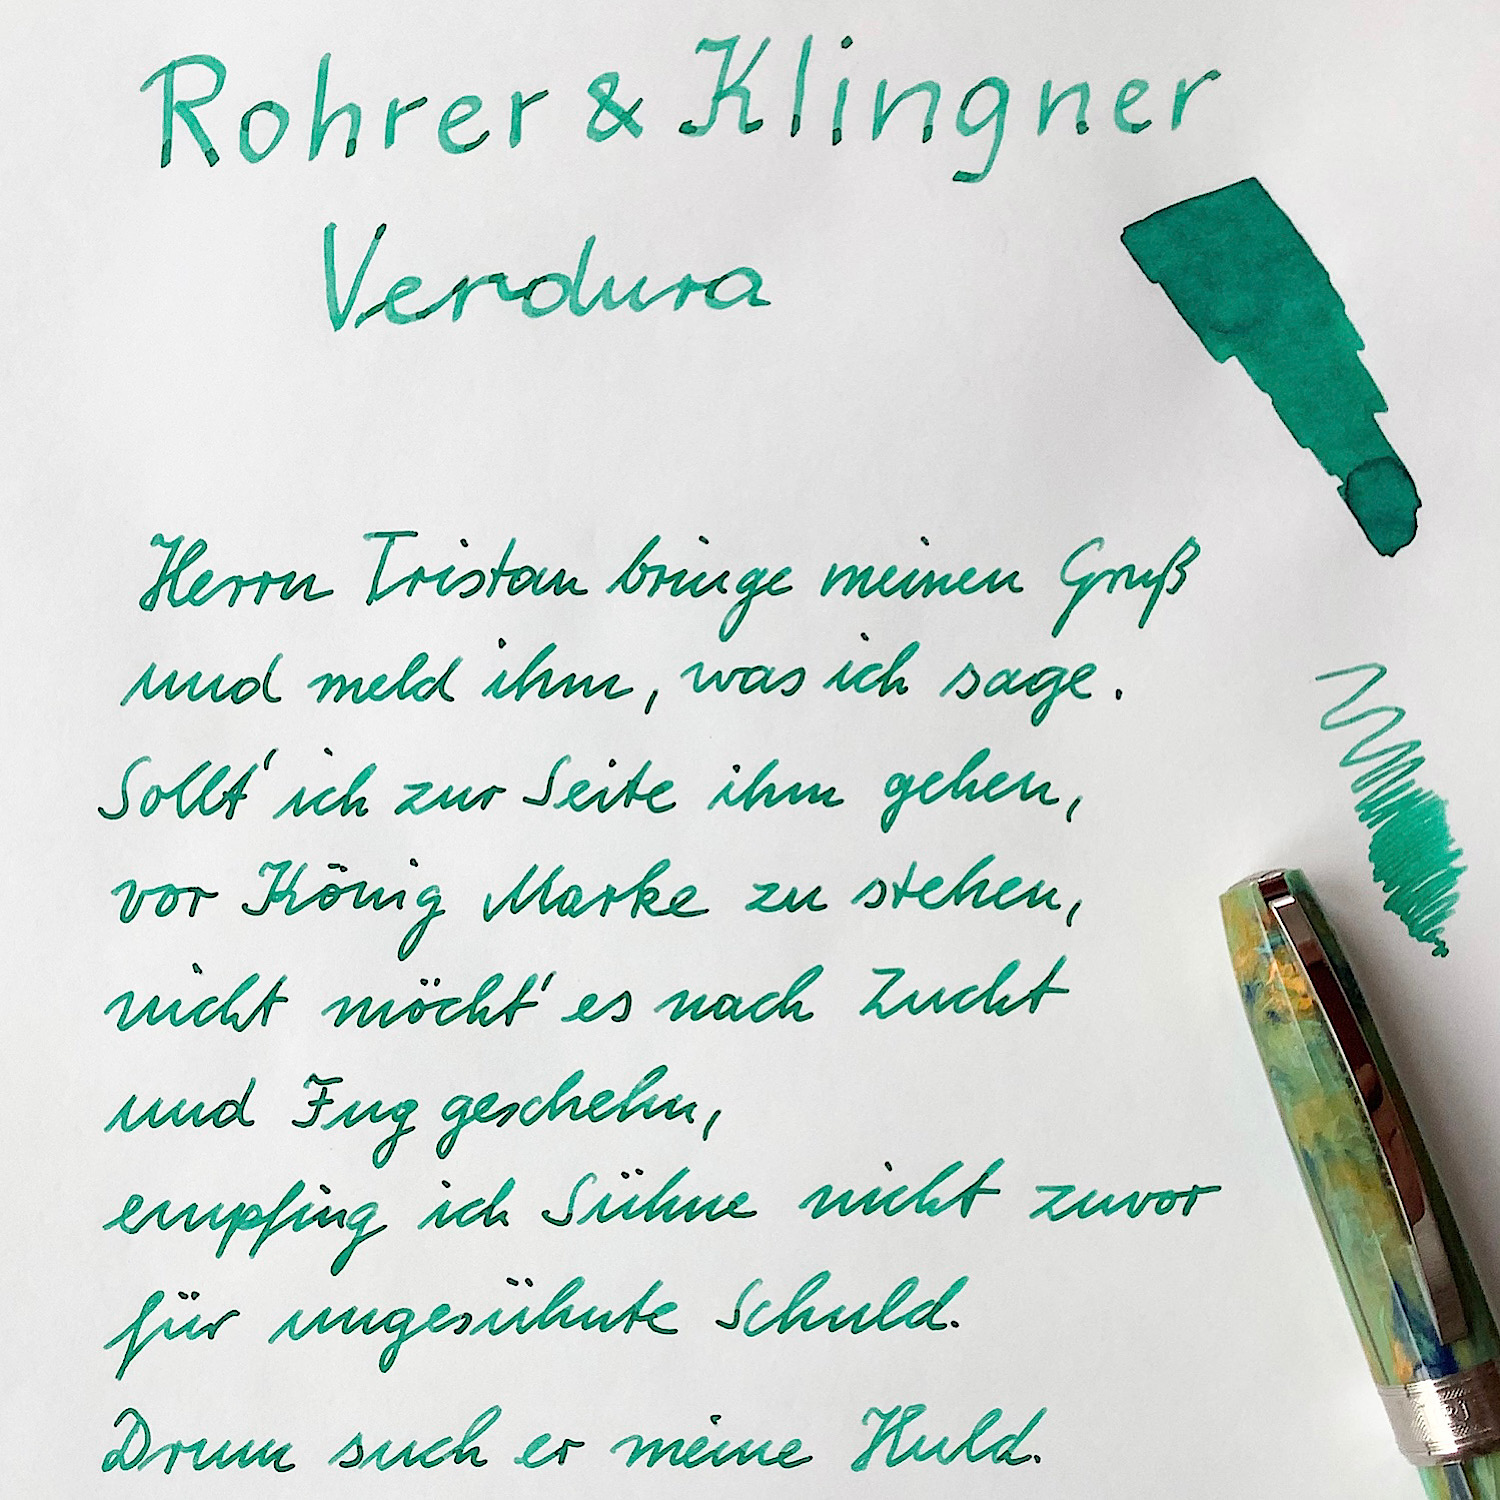 Rohrer & Klingner
Verdura
Herrn Tristan bringe meinen Gruß
und meld ihm, was ich sage.
Sollt' ich zur Seite ihm gehen,
vor König Marke zu stehen,
nicht möcht' es nach Zucht
und Fug geschehn,
empfing ich Sühne nicht zuvor
für ungesühnte Schuld.
Drum such er meine Huld.